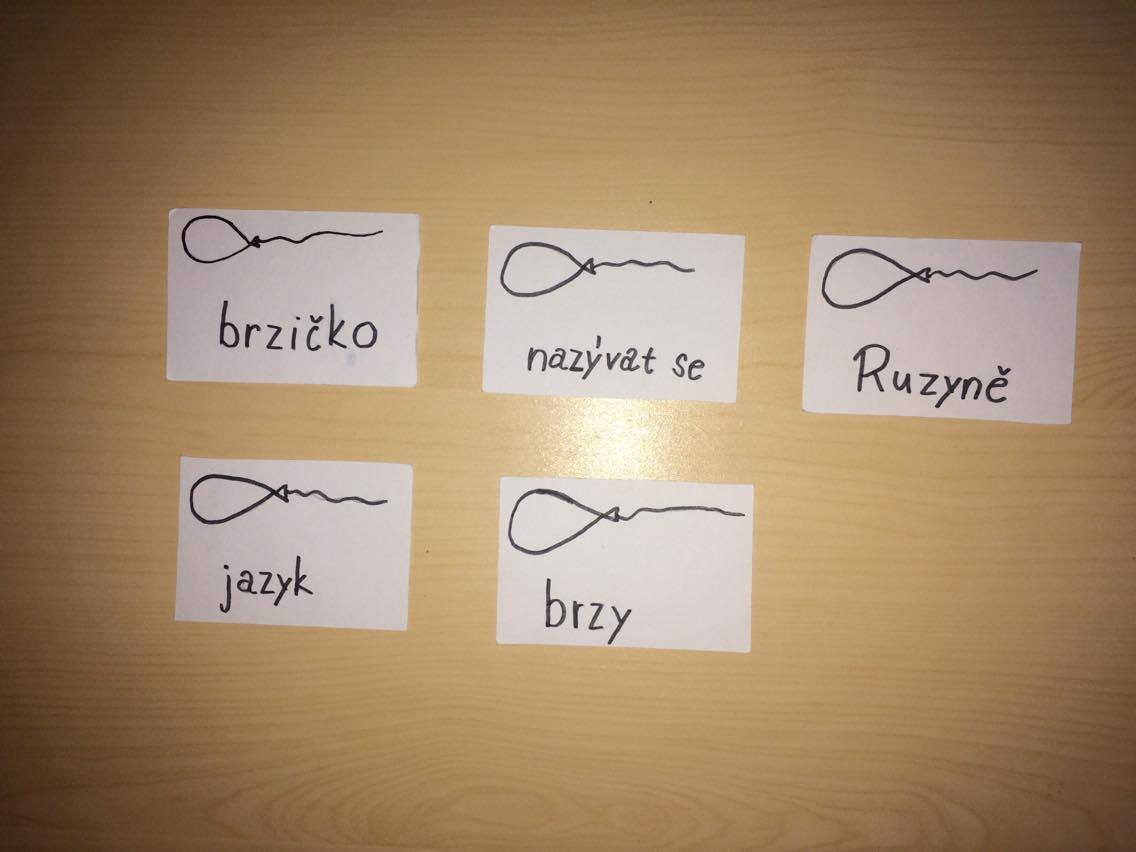 brzičko
nazývat se
Ruzyně
jazyk
brzy